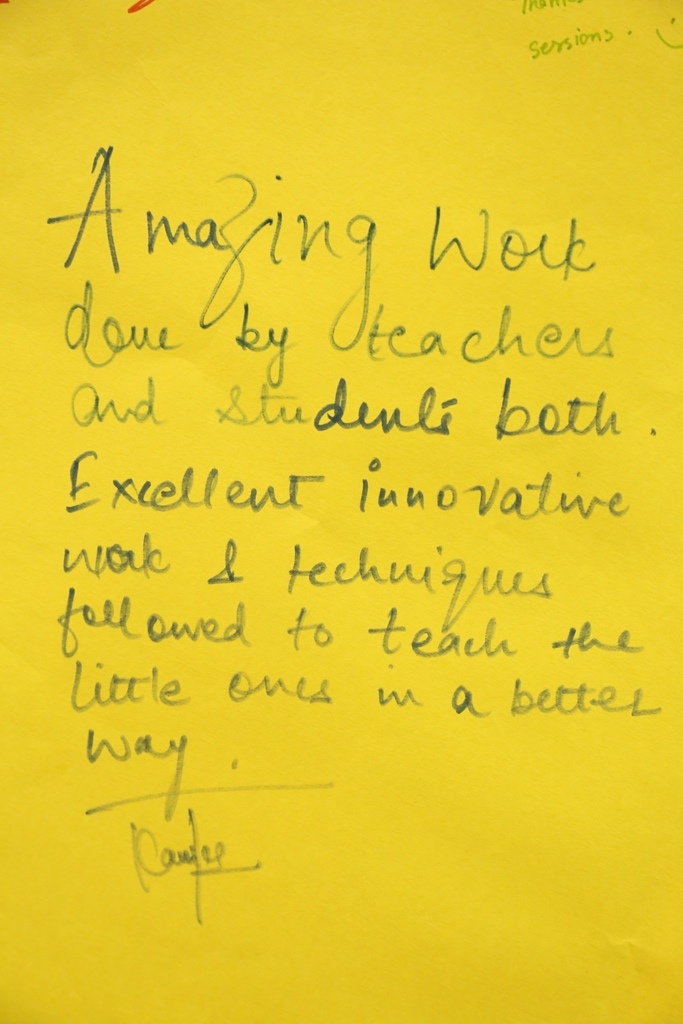 sessions. :)
Amazing Work
done by teachers
and students both.
Excellent innovative
work & techniques
followed to teach the
little ones in a better
way.